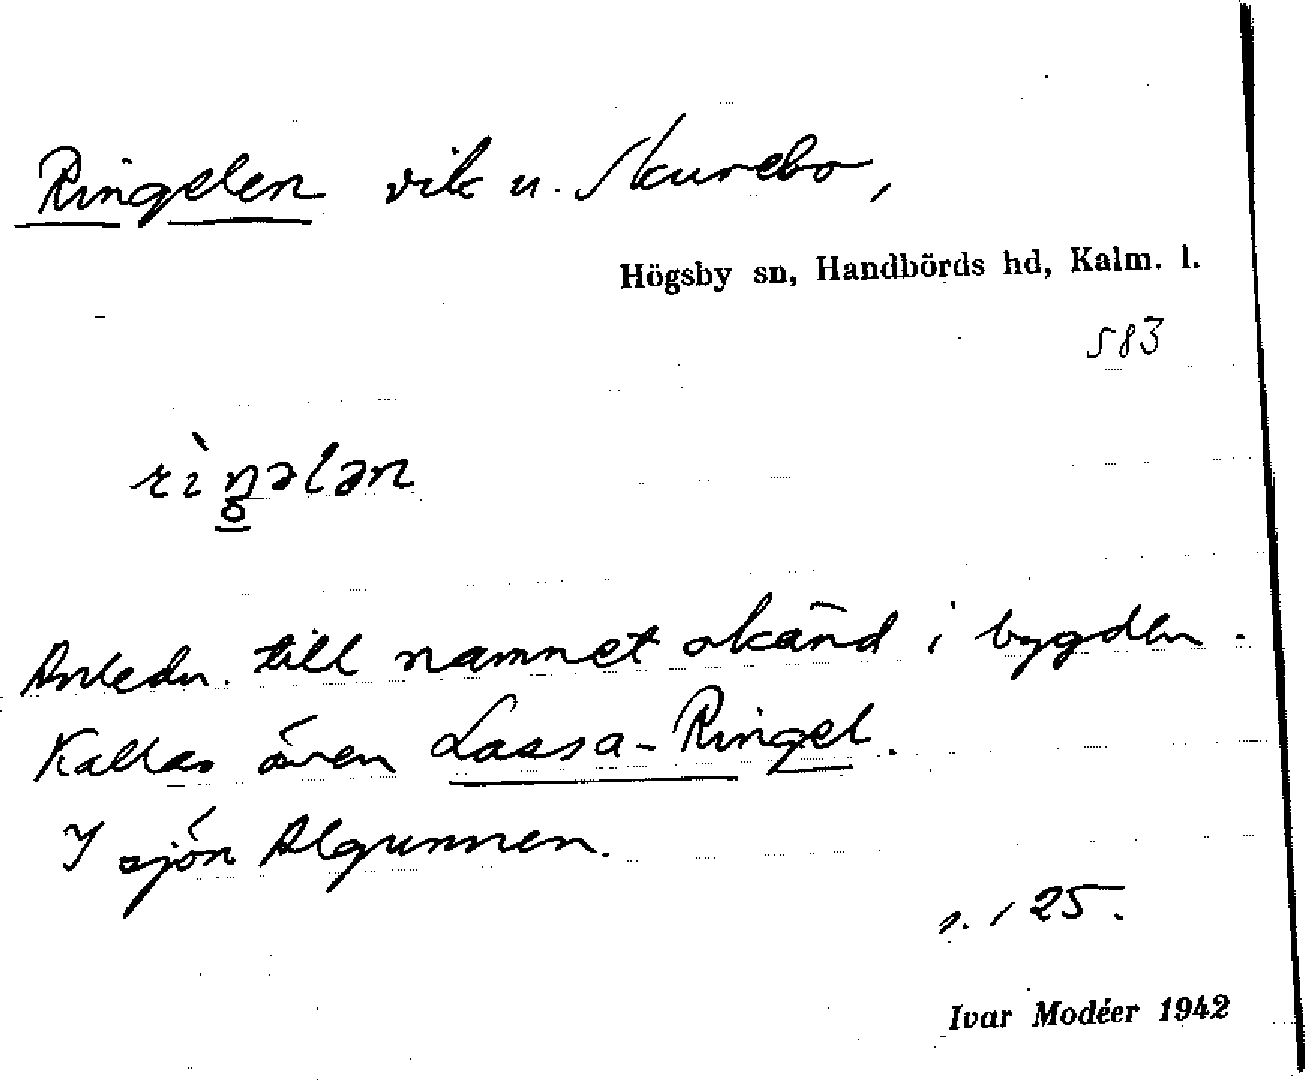 Ringelen vik u. Skurebo,
Högsby sn, Handbörds hd, Kalm. l.
583
rìŋələn
Anledn. till namnet okänd i bygden.
Kallas även Lassa-Ringel.
I sjön Algunnen.
s. 125.
Ivar Modéer 1942